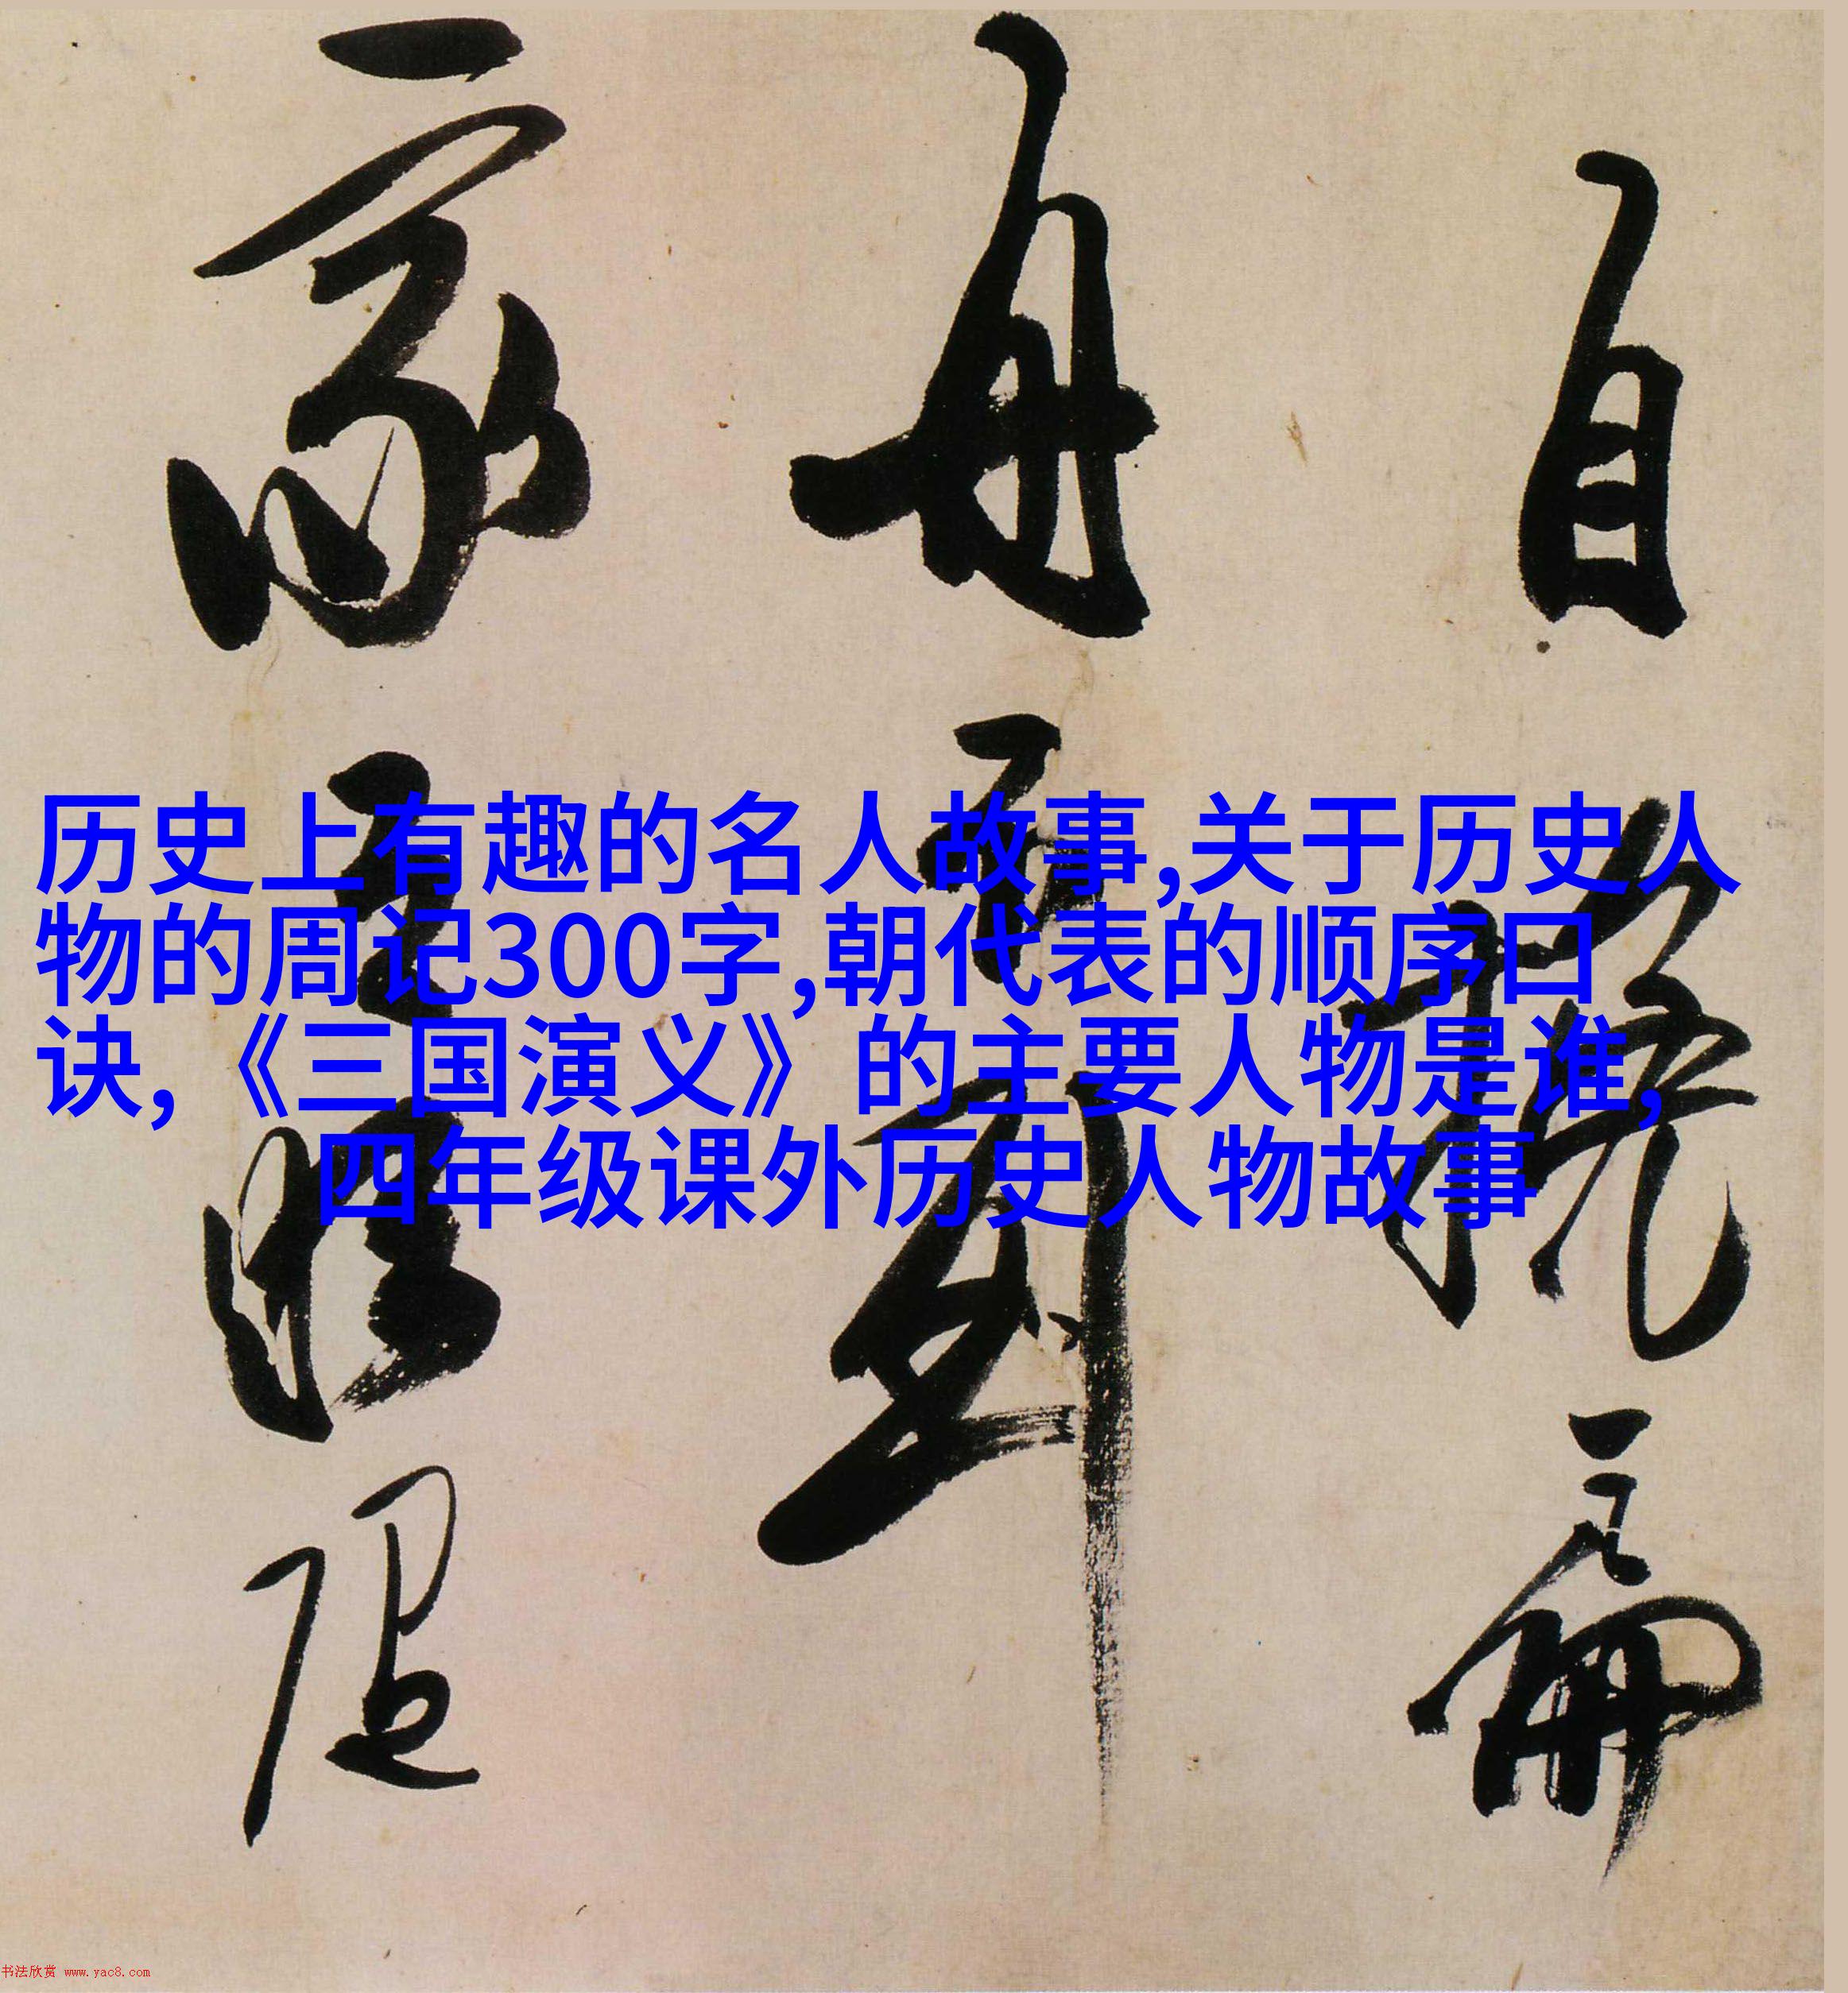 自撓扁
舟再到
家
历史上有趣的名人故事,关于历史人
物的周记300字,朝代表的顺序口
诀,《三国演义》的主要人物是谁,
四年级课外历史人物故事
书法欣赏 www.yac8.com